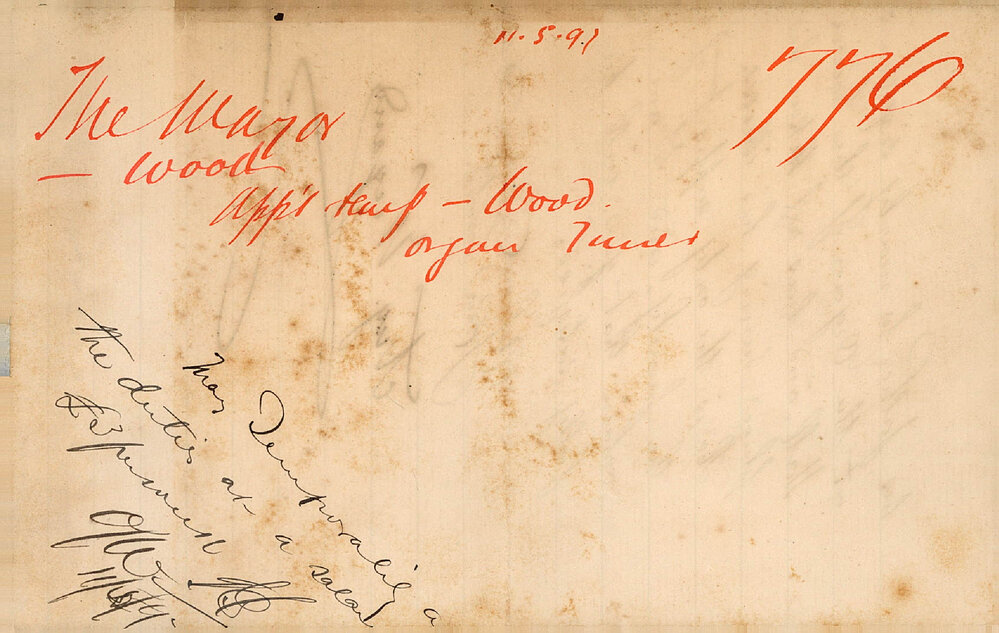 11.5.91
776
The Mayor
— Wood
app's temp — Wood.
organ Tuner
May Temporarily a
the duties at a salary
£3 per week